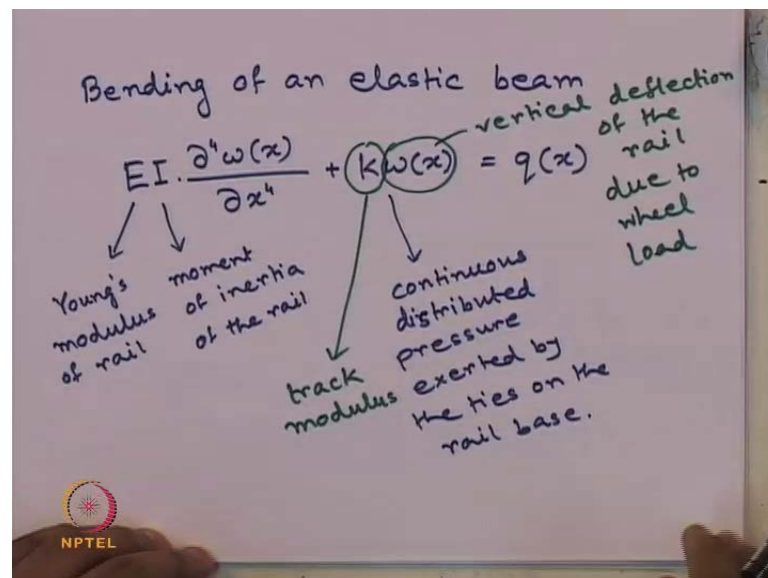 Bending of an elastic beam
EI. ∂⁴ω(x)/∂x⁴ + kω(x) = q(x)
vertical deflection
of the
rail
due to
wheel
load
Young's
modulus
of rail
moment
of inertia
of the rail
track
modulus
continuous
distributed
pressure
exerted by
the ties on the
rail base.
NPTEL